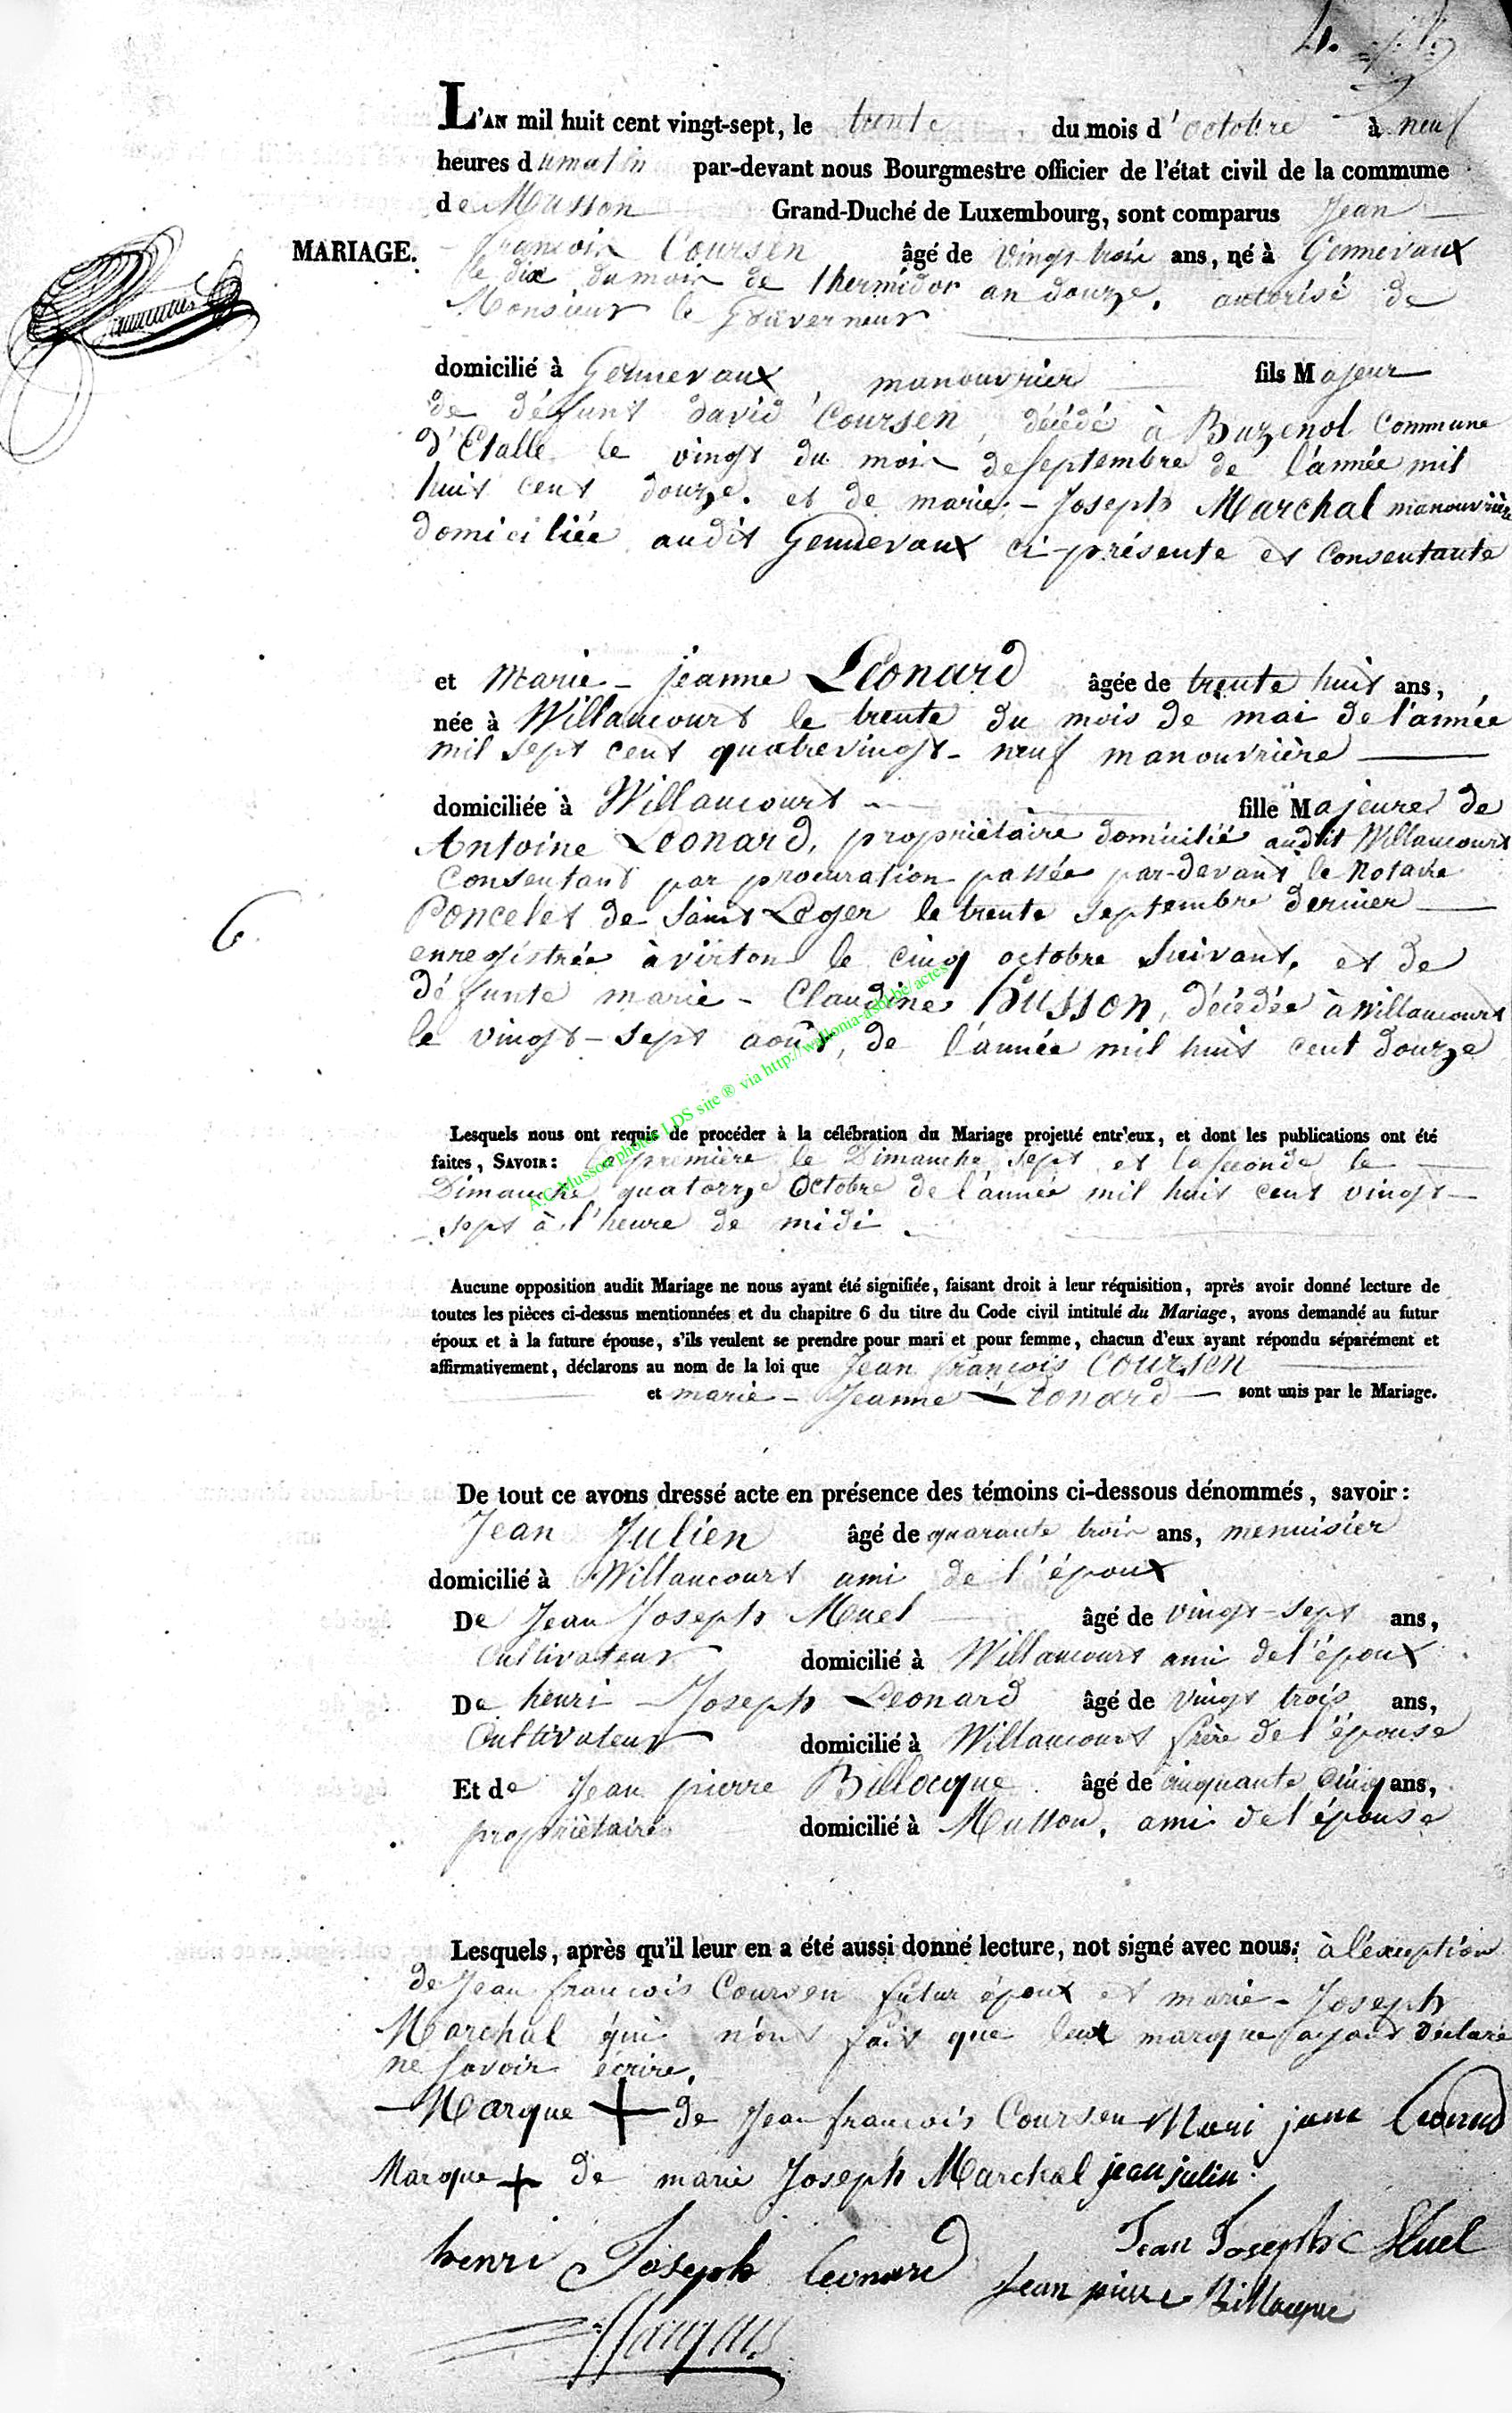 4.
L'AN mil huit cent vingt-sept, le trente du mois d'octobre à neuf
heures du matin par-devant nous Bourgmestre officier de l'état civil de la commune
de Musson Grand-Duché de Luxembourg, sont comparus Jean
MARIAGE. françois Coursen âgé de vingt trois ans, né à Gennevaux
le dix du mois de thermidor an douze, autorisé de
Monsieur le Gouverneur
domicilié à Gennevaux, manouvrier fils Majeur
de défunt david Coursen, décédé à Buzenol Commune
d'Etalle le vingt du mois de septembre de l'année mil
huit cent douze. et de marie-Joseph Marchal manouvrière
domiciliée audit Gennevaux ci-présente et Consentante
et Marie-jeanne Léonard âgée de trente huit ans,
née à Willancourt le trente du mois de mai de l'année
mil sept cent quatrevingt-neuf manouvrière
domiciliée à Willancourt fille Majeure de
Antoine Léonard, propriètaire domicilié audit Willancourt
Consentant par procuration passée par-devant le Notaire
6. Poncelet de Saint Léger le trente septembre dernier
enregistrée à virton le cinq octobre suivant, et de
défunte marie-Claudine Husson, décédée à Willancourt
le vingt-sept août, de l'année mil huit cent douze
Lesquels nous ont requis de procéder à la célébration du Mariage projetté entr'eux, et dont les publications ont été
faites, SAVOIR: la première le Dimanche sept et la seconde le
Dimanche quatorze Octobre de l'année mil huit cent vingt-
sept à l'heure de midi.
A.C. Musson photos LDS site ® via http://wallonia-asbl.be/actes
Aucune opposition audit Mariage ne nous ayant été signifiée, faisant droit à leur réquisition, après avoir donné lecture de
toutes les pièces ci-dessus mentionnées et du chapitre 6 du titre du Code civil intitulé du Mariage, avons demandé au futur
époux et à la future épouse, s'ils veulent se prendre pour mari et pour femme, chacun d'eux ayant répondu séparément et
affirmativement, déclarons au nom de la loi que Jean françois Coursen
et marie-Jeanne Léonard sont unis par le Mariage.
De tout ce avons dressé acte en présence des témoins ci-dessous dénommés, savoir:
Jean Julien âgé de quarante trois ans, menuisier
domicilié à Willancourt ami de l'époux
De Jean Joseph Muel âgé de vingt-sept ans,
Cultivateur domicilié à Willancourt ami de l'époux
De henri-Joseph Léonard âgé de vingt trois ans,
Cultivateur domicilié à Willancourt frère de l'épouse
Et de Jean pierre Billocque âgé de cinquante cinq ans,
propriètaire domicilié à Musson, ami de l'épouse
Lesquels, après qu'il leur en a été aussi donné lecture, not signé avec nous; à l'éxception
de Jean françois Coursen futur époux et marie-Joseph
Marchal qui n'ont fait que leur marque ayant déclaré
ne savoir écrire.
Marque + de Jean françois Coursen Mari jane Leonard
Marque + de marie Joseph Marchal jean julin
henri Joseph Leonard Jean Joseph Muel
Jean pierre Billocque